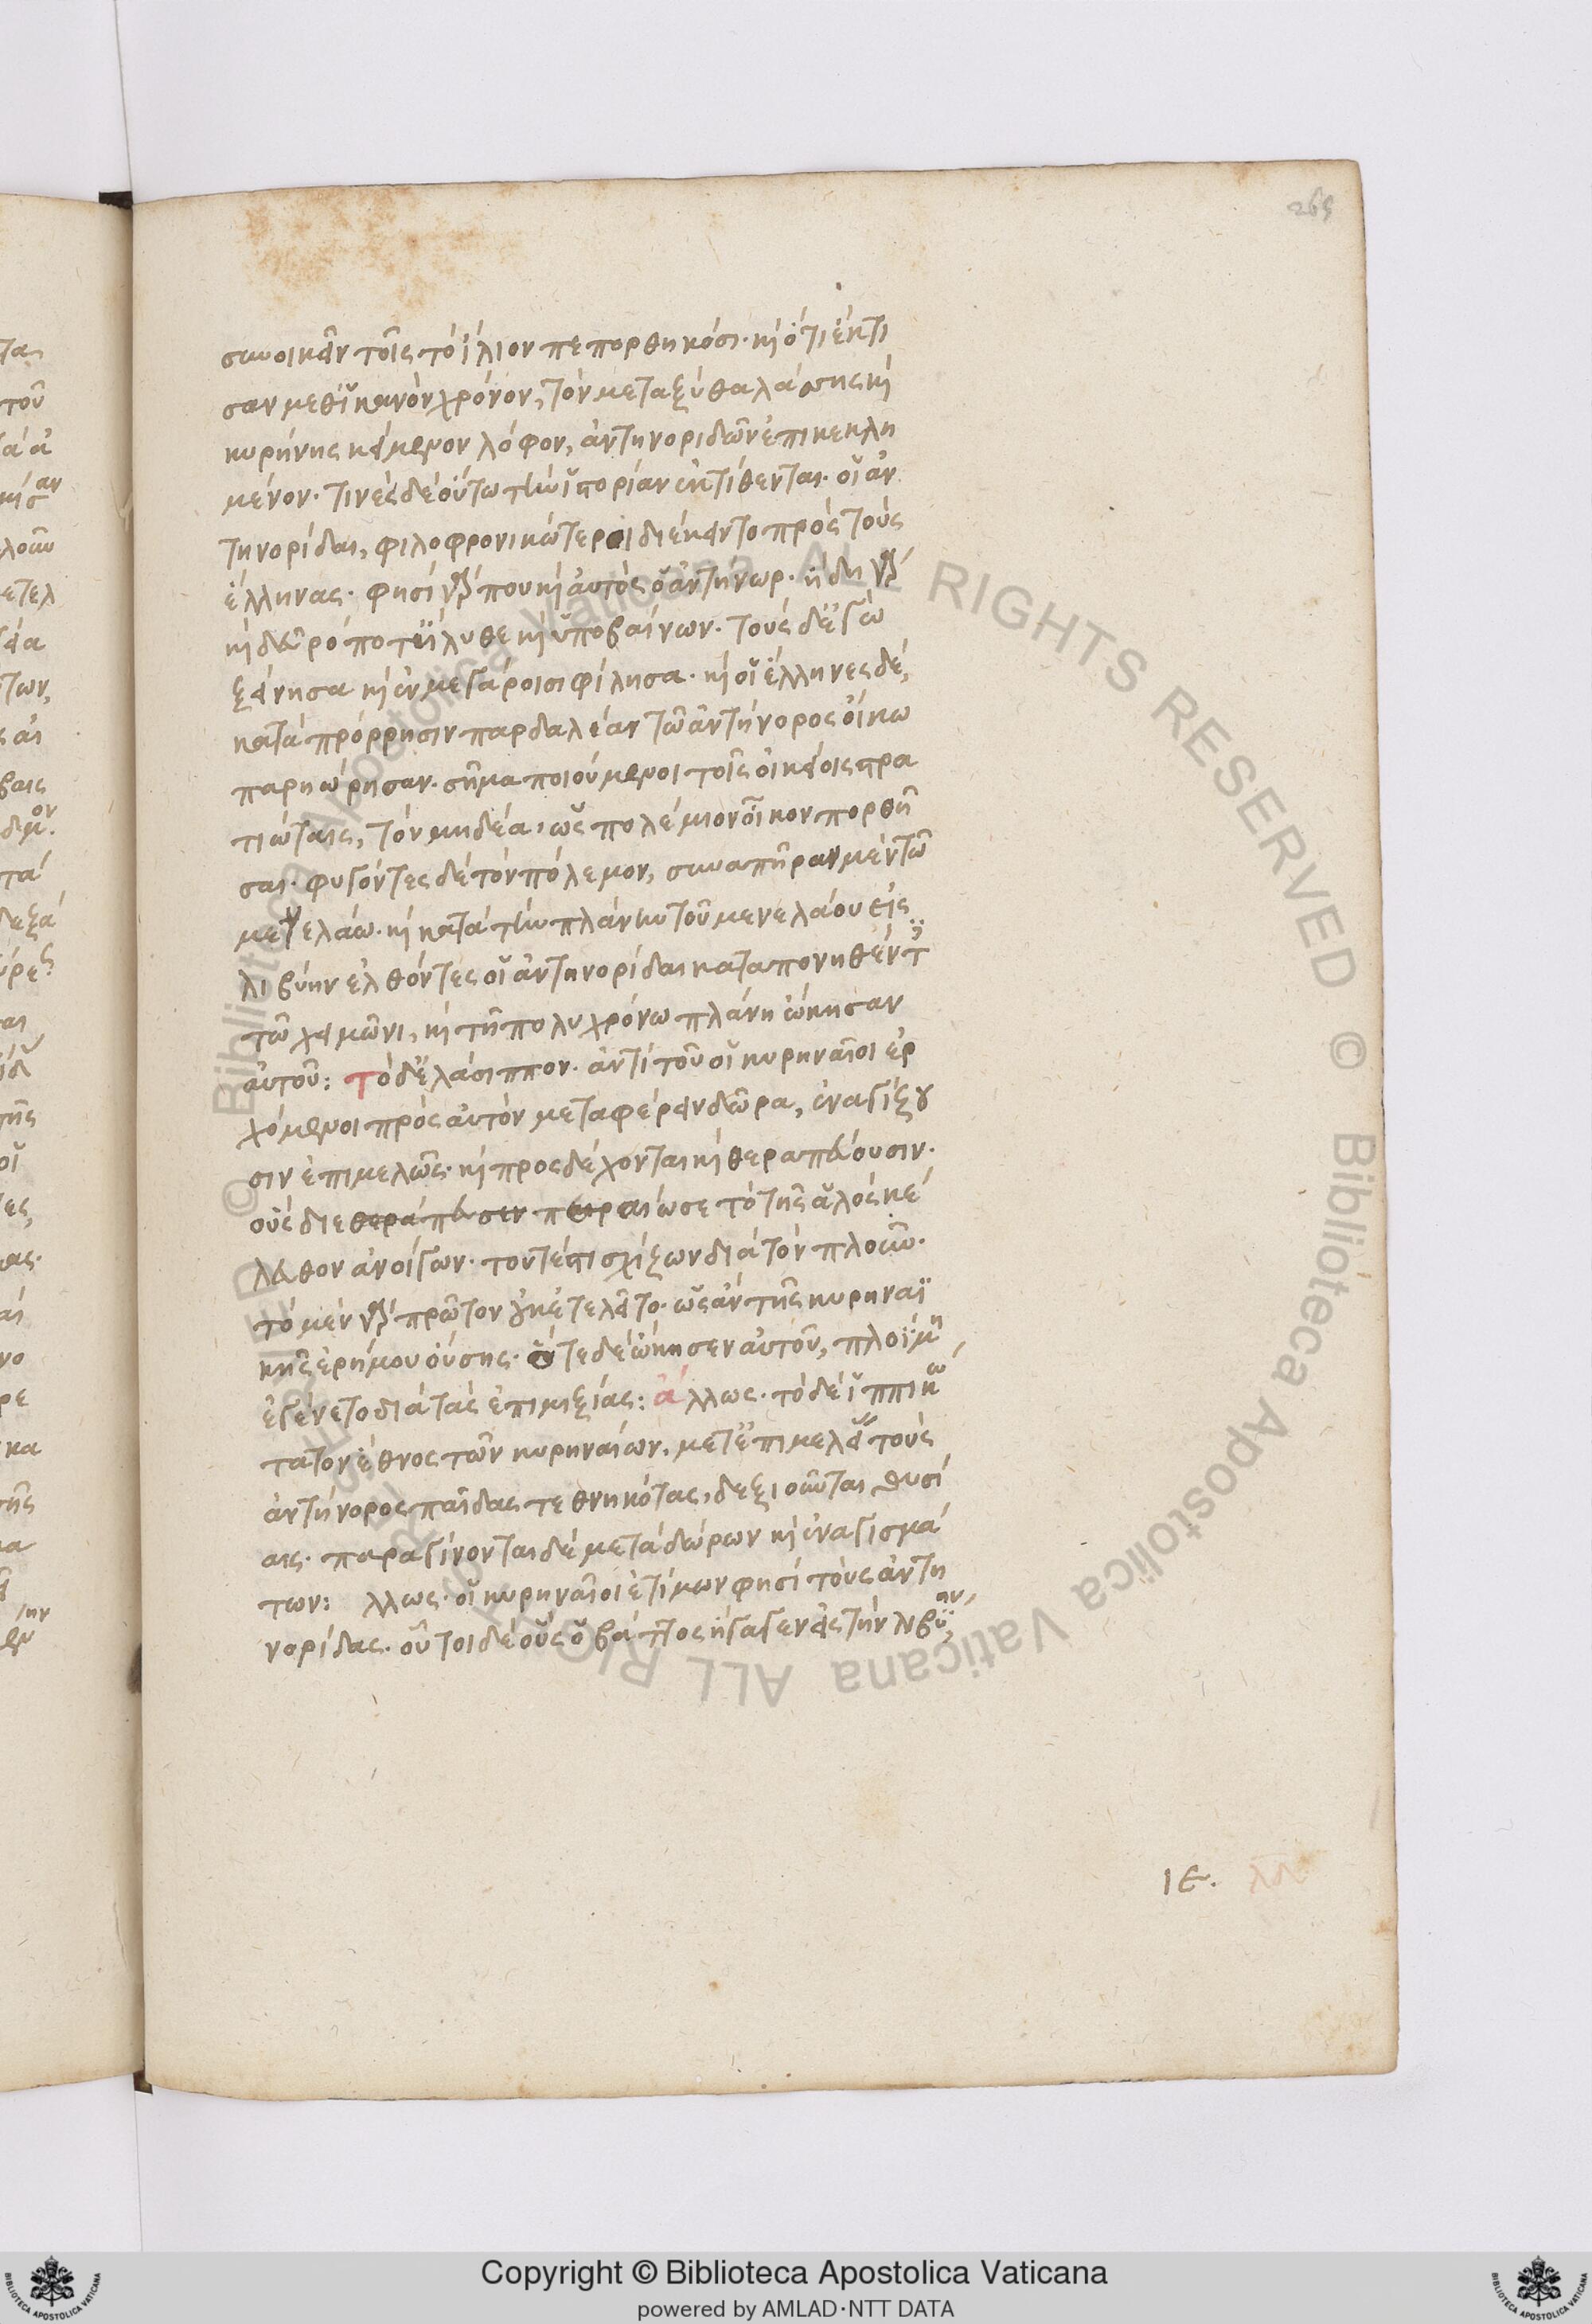 265
συνοικεῖν τοῖς τὸ ἴλιον πεπορθηκόσι· κὶ ὅτι ἔκτι
σαν μεθ' ἱκανὸν χρόνον, τὸν μεταξὺ θαλάσσης κὶ
κυρήνης κείμενον λόφον, ἀντηνοριδῶν ἐπικεκλη
μένον· τινὲς δὲ οὕτω τὴν ἱστορίαν ἐκτίθενται· οἱ ἀν
τηνορίδαι, φιλοφρονικώτεροι διέκειντο πρὸς τοὺς
ἕλληνας· φησὶ γάρ που κὶ αὐτὸς ὁ ἀντήνωρ· ἤδη γὰρ
κὶ δεῦρό ποτ' ἤλυθε κὶ ὑποβαίνων· τοὺς δ' ἐγὼ
ξείνησα κὶ ἐν μεγάροισι φίλησα· κὶ οἱ ἕλληνες δέ,
κατὰ πρόρρησιν παρδαλέαν τῶ ἀντήνορος οἴκω
παρηώρησαν· σῆμα ποιούμενοι τοῖς οἰκείοις στρα
τιώταις, τὸν μηδέα, ὡς πολέμιον οἶκον πορθῆ
σαι· φυγόντες δὲ τὸν πόλεμον, συναπῆραν μὲν τῶ
μενελάω· κὶ κατὰ τὴν πλάνην τοῦ μενελάου εἰς
λιβύην ἐλθόντες οἱ ἀντηνορίδαι καταπονηθέντες
τῶ χειμῶνι, κὶ τῆ πολυχρόνω πλάνη ὤκησαν
αὐτοῦ: τὸ δ' ἐλάσιππον· ἀντὶ τοῦ οἱ κυρηναῖοι ἐρ
χόμενοι πρὸς αὐτὸν μεταφέρειν δῶρα, ἐναγίζου
σιν ἐπιμελῶς· κὶ προσδέχονται κὶ θεραπεύουσιν·
οὓς διεθεράπευσεν περαιώσε τὸ τῆς ἁλὸς κέ
λευθον ἀνοίγων· τουτέστι σχίζων διὰ τὸν πλοῦν·
τὸ μὲν γὰρ πρῶτον οὐκ ἐτελεῖτο· ὡς ἂν τῆς κυρηναϊ
κῆς ἐρήμου οὔσης· ὅτε δὲ ὤκησεν αὐτοῦ, πλοϊμη
ἐγένετο διὰ τὰς ἐπιμιξίας: ἄλλως· τὸ δὲ ἱππικώ
τατον ἔθνος τῶν κυρηναίων, μετ' ἐπιμελείας τοὺς
ἀντήνορος παῖδας τεθνηκότας, δεξιοῦνται θυσί
αις· παραγίνονται δὲ μετὰ δώρων κὶ ἐναγισμά
των: λλως· οἱ κυρηναῖοι ἐτίμων φησὶ τοὺς ἀντη
νορίδας· οὗτοι δὲ οὓς ὁ βάττος ἤγαγεν εἰς τὴν λιβύην,
ιε.
Copyright © Biblioteca Apostolica Vaticana
powered by AMLAD·NTT DATA